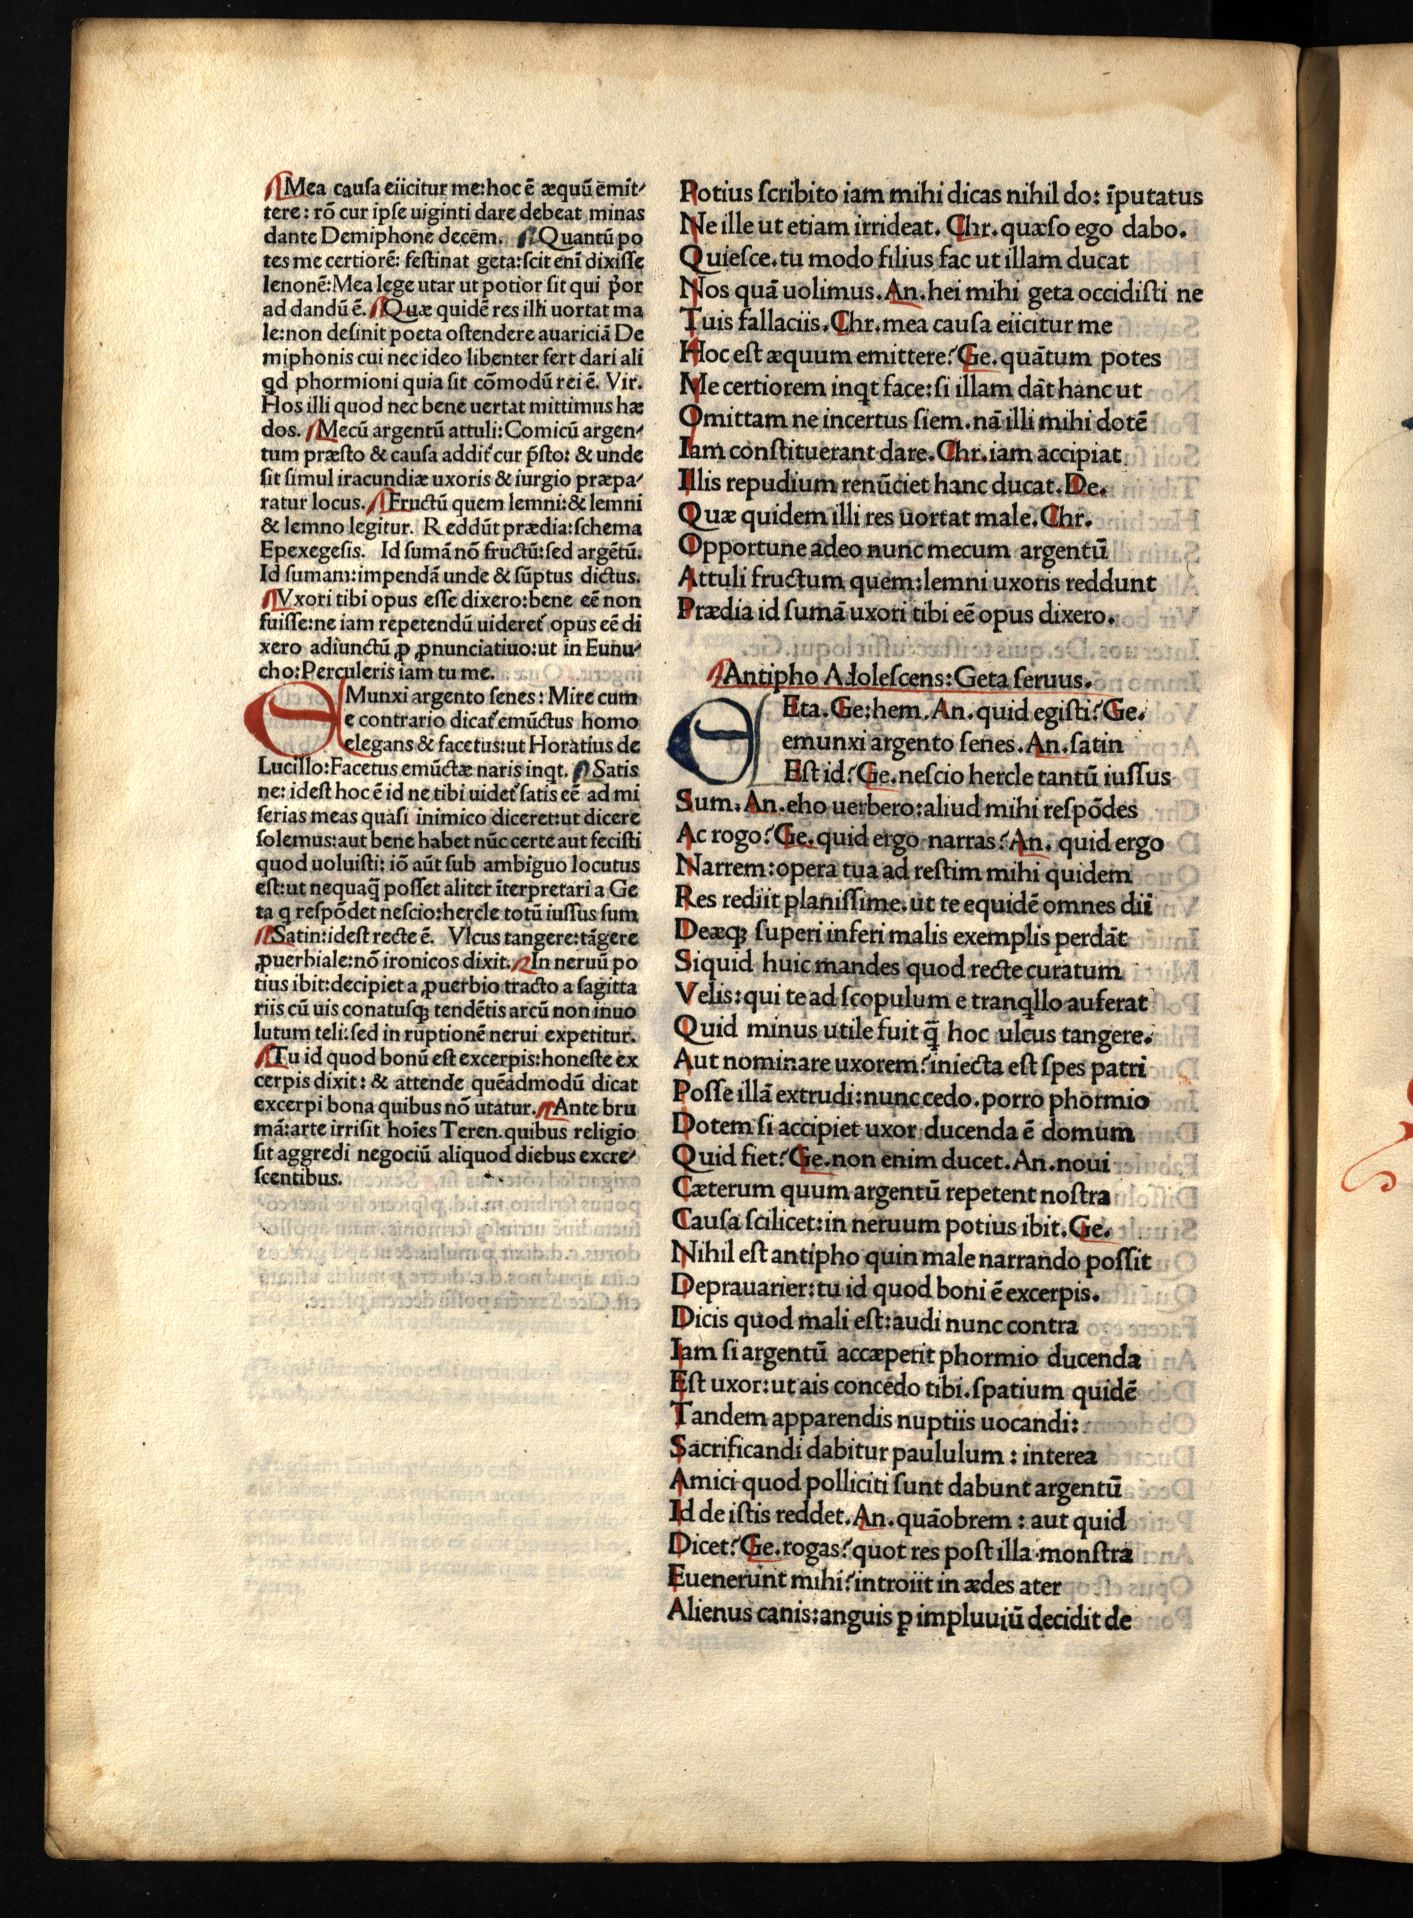 Mea cauſa eiicitur me:hoc ē æquū emit⸗
tere: rō cur ipſe uiginti dare debeat minas
dante Demiphone decēm. Quantū po
tes me certiorē: feſtinat geta:ſcit enī dixiſſe
lenonē:Mea lege utar ut potior ſit qui p̄or
ad dandū ē. Quæ quidē res illi uortat ma
le:non deſinit poeta oſtendere auariciā De
miphonis cui nec ideo libenter fert dari ali
qd phormioni quia ſit cōmodū rei ē. Vir.
Hos illi quod nec bene uertat mittimus hæ
dos. Mecū argentū attuli:Comicū argen⸗
tum præſto & cauſa addit᷑ cur p̄ſto: & unde
ſit ſimul iracundiæ uxoris & iurgio præpa⸗
ratur locus. Fructū quem lemni:& lemni
& lemno legitur. Reddūt prædia:ſchema
Epexegeſis. Id ſumā nō fructū:ſed argētū.
Id ſumam:impendā unde & ſūptus dictus.
Vxori tibi opus eſſe dixero:bene eē non
fuiſſe:ne iam repetendū uideret᷑ opus eē di
xero adiunctū ꝓ ꝓnunciatiuo:ut in Eunu⸗
cho:Perculeris iam tu me.
EMunxi argento ſenes: Mire cum
e contrario dicat᷑ emūctus homo
elegans & facetus:ut Horatius de
Lucillo:Facetus emūctæ naris inqt. Satis
ne: ideſt hoc ē id ne tibi uidet᷑ ſatis eē ad mi
ſerias meas quaſi inimico diceret:ut dicere
ſolemus:aut bene habet nūc certe aut feciſti
quod uoluiſti: iō aūt ſub ambiguo locutus
eſt:ut nequaq̄ poſſet aliter īterpretari a Ge
ta q reſpōdet neſcio:hercle totū iuſſus ſum
Satin:ideſt recte ē. Vlcus tangere:tāgere
ꝓuerbiale:nō ironicos dixit. In neruū po
tius ibit:decipiet a ꝓuerbio tracto a ſagitta
riis cū uis conatuſqꝫ tendētis arcū non inuo
lutum teli:ſed in rūptionē nerui expetitur.
Tu id quod bonū eſt excerpis:honeſte ex
cerpis dixit: & attende quēadmodū dicat
excerpi bona quibus nō utatur. Ante bru
mā:arte irriſit hoīes Teren.quibus religio
ſit aggredi negociū aliquod diebus excre⸗
ſcentibus.
Potius ſcribito iam mihi dicas nihil do: īputatus
Ne ille ut etiam irrideat. Chr.quæſo ego dabo.
Quieſce.tu modo filius fac ut illam ducat
Nos quā uolimus.An.hei mihi geta occidiſti ne
Tuis fallaciis.Chr.mea cauſa eiicitur me
Hoc eſt æquum emittere?Ge.quātum potes
Me certiorem inqt face:ſi illam dāt hanc ut
Omittam ne incertus ſiem.nā illi mihi dotē
Iam conſtituerant dare.Chr.iam accipiat
Illis repudium renūciet hanc ducat.De.
Quæ quidem illi res uortat male.Chr.
Opportune adeo nunc mecum argentū
Attuli fructum quem:lemni uxoris reddunt
Prædia id ſumā uxori tibi eē opus dixero.
Antipho Adoleſcens:Geta ſeruus.
GEta.Ge:hem.An.quid egiſti?Ge.
emunxi argento ſenes.An.ſatin
Eſt id?Ge.neſcio hercle tantū iuſſus
Sum.An.eho uerbero:aliud mihi reſpōdes
Ac rogo?Ge.quid ergo narras?An.quid ergo
Narrem:opera tua ad reſtim mihi quidem
Res rediit planiſſime.ut te equidē omnes dii
Deæqꝫ ſuperi inferi malis exemplis perdāt
Siquid huic mandes quod recte curatum
Velis:qui te ad ſcopulum e tranqllo auferat
Quid minus utile fuit q̄ hoc ulcus tangere.
Aut nominare uxorem?iniecta eſt ſpes patri
Poſſe illā extrudi:nunc cedo.porro phormio
Dotem ſi accipiet uxor ducenda ē domum
Quid fiet?Ge.non enim ducet.An.noui
Cæterum quum argentū repetent noſtra
Cauſa ſcilicet:in neruum potius ibit.Ge.
Nihil eſt antipho quin male narrando poſſit
Deprauarier:tu id quod boni ē excerpis.
Dicis quod mali eſt:audi nunc contra
Iam ſi argentū accæperit phormio ducenda
Eſt uxor:ut ais concedo tibi.ſpatium quidē
Tandem apparendis nuptiis uocandi:
Sacrificandi dabitur paululum : interea
Amici quod polliciti ſunt dabunt argentū
Id de iſtis reddet.An.quāobrem : aut quid
Dicet?Ge.rogas?quot res poſt illa monſtra
Euenerunt mihi?introiit in ædes ater
Alienus canis:anguis ꝑ impluuiū decidit de